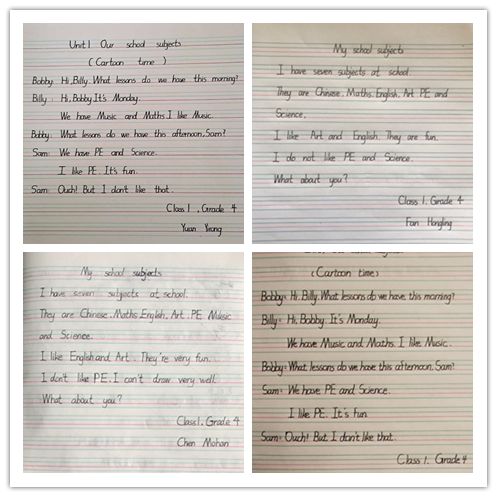 Unit 1 Our school subjects
(Cartoon time)
Bobby: Hi, Billy. What lessons do we have this morning?
Billy: Hi, Bobby. It's Monday.
We have Music and Maths. I like Music.
Bobby: What lessons do we have this afternoon, Sam?
Sam: We have PE and Science.
I like PE. It's fun.
Sam: Ouch! But I don't like that.
Class 1, Grade 4
Yuan
My school subjects
I have seven subjects at school.
They are Chinese. Maths. English, Art PE and
Science,
I like Art and English. They are fun.
I do not like PE and Science.
What about you?
Class 1. Grade 4
Fan Hongling
My school subjects
I have seven subjects at school.
They are Chinese. Maths. English. Art. PE Music
and Science.
I like English and Art. They're very fun.
I don't like PE. I can't draw very well.
What about you?
Class1. Grade 4
Chen Mohan
(Cartoon time)
Bobby: Hi, Billy. What lessons do we have this morning?
Billy: Hi, Bobby. It's Monday.
We have Music and Maths. I like Music.
Bobby: What lessons do we have this afternoon. Sam?
Sam: We have PE and Science.
I like PE. It's fun
Sam: Ouch! But I don't like that.
Class 1. Grade 4